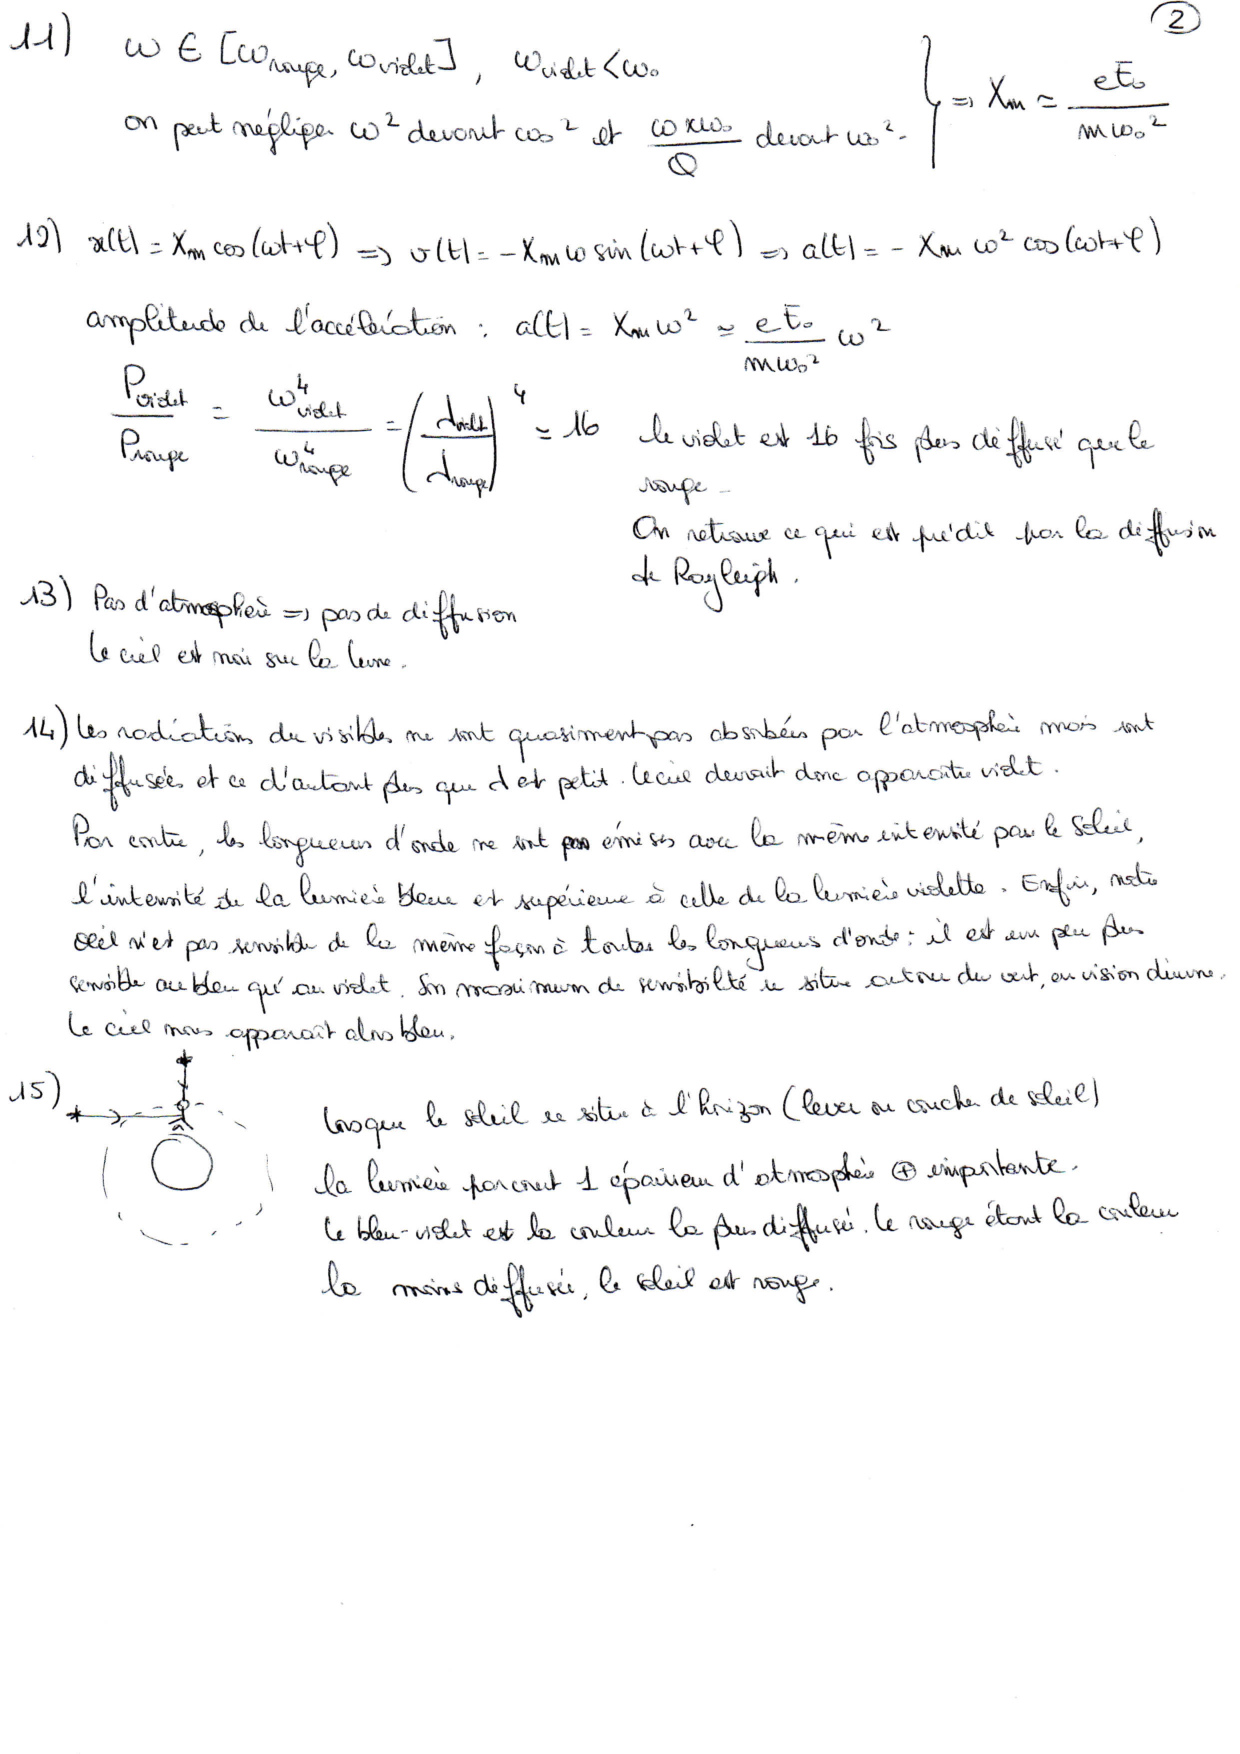 2
11) ω ∈ [ω_rouge, ω_violet], ω_violet < ω₀
on peut négliger ω² devant ω₀² et (ω×ω₀)/Q devant ω₀². } => Xm ≃ eE₀/(mω₀²)
12) x(t) = Xm cos(ωt+φ) => v(t) = -Xm ω sin(ωt+φ) => a(t) = - Xm ω² cos(ωt+φ)
amplitude de l'accélération : a(t) = Xm ω² ≃ eE₀/(mω₀²) ω²
P_violet/P_rouge = ω⁴_violet/ω⁴_rouge = (λ_violet/λ_rouge)⁴ ≃ 16 le violet est 16 fois plus diffusé que le
rouge.
On retrouve ce qui est prédit par la diffusion
de Rayleigh.
13) Pas d'atmosphère => pas de diffusion
le ciel est noir sur la lune.
14) Les radiations du visibles ne sont quasiment pas absorbées par l'atmosphère mais sont
diffusées et ce d'autant plus que λ est petit. Le ciel devrait donc apparaître violet.
Par contre, les longueurs d'onde ne sont pas émises avec la même intensité par le Soleil,
l'intensité de la lumière bleue est supérieure à celle de la lumière violette. Enfin, notre
oeil n'est pas sensible de la même façon à toutes les longueurs d'onde : il est un peu plus
sensible au bleu qu'au violet. Son maximum de sensibilité se situe autour du vert, en vision diurne.
Le ciel nous apparaît alors bleu.
15)
Lorsque le soleil se situe à l'horizon (lever ou coucher de soleil)
la lumière parcourt 1 épaisseur d'atmosphère ⊕ importante.
Le bleu-violet est la couleur la plus diffusée. Le rouge étant la couleur
la moins diffusée, le soleil est rouge.